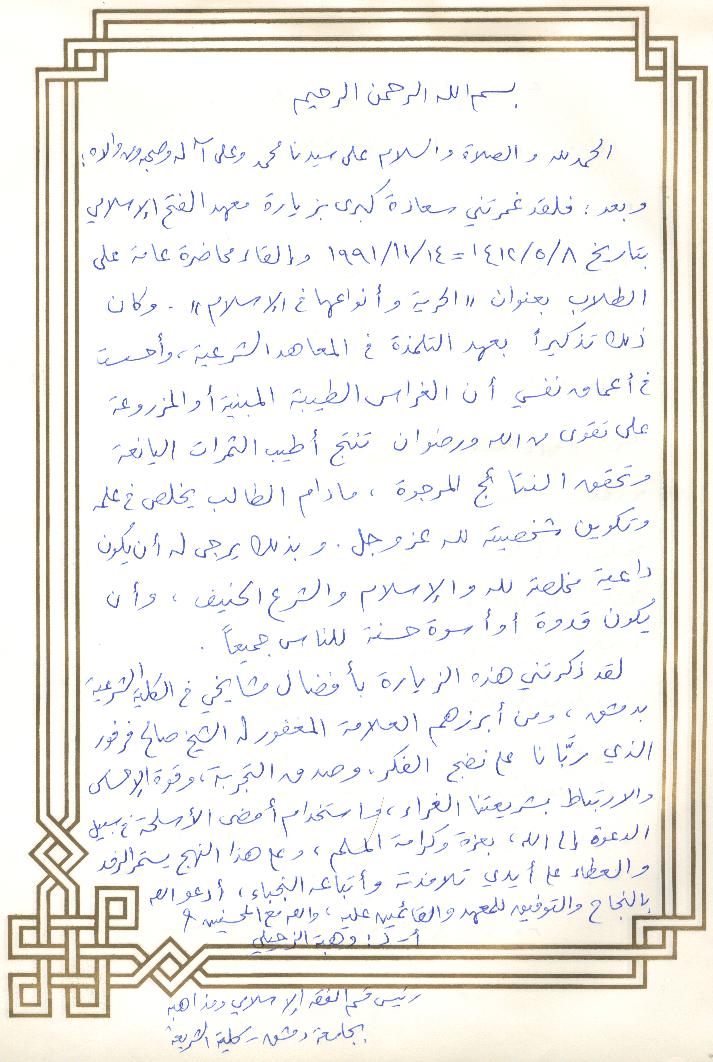 بسم الله الرحمن الرحيم
الحمد لله و الصلاة والسلام على سيدنا محمد وعلى آله وصحبه ومن والاه؛
وبعد : فلقد غمرتني سعادة كبرى بزيارة معهد الفتح الإسلامي
بتاريخ ١٤١٢/٥/٨ = ١٩٩١/١١/١٤ وإلقاء محاضرة عامة على
الطلاب بعنوان "الحرية وأنواعها في الإسلام" . وكان
ذلك تذكيراً بعهد التلمذة في المعاهد الشرعية ، وأحسست
في أعماق نفسي أن الغراس الطيبة المبنية أو المزروعة
على تقوى من الله ورضوان تنتج أطيب الثمرات اليانعة
وتحقق النتائج المرجوة ، مادام الطالب يخلص في علمه
وتكوين شخصيته لله عز وجل . و بذلك يرجى له أن يكون
داعية مخلصة لله والإسلام والشرع الحنيف ، وأن
يكون قدوة أو أسوة حسنة للناس جميعاً .
لقد ذكرتني هذه الزيارة بأفضال مشايخي في الكلية الشرعية
بدمشق ، ومن أبرزهم العلامة المغفور له الشيخ صالح فرفور
الذي ربَّانا على نضج الفكر ، وصدق التجربة ، وقوة الإحساس
والارتباط بشريعتنا الغراء ، واستخدام أمضى الأسلحة في سبيل
الدعوة إلى الله ، بعزة وكرامة المسلم ، وعلى هذا النهج يستمر الرفد
والعطاء على أيدي تلامذته وأتباعه النجباء ، أدعو الله
بالنجاح والتوفيق للمعهد والقائمين عليه ، والله مع المحسنين
أ. د : وهبة الزحيلي
رئيس قسم الفقه الإسلامي ومذاهبه
بجامعة دمشق - كلية الشريعة